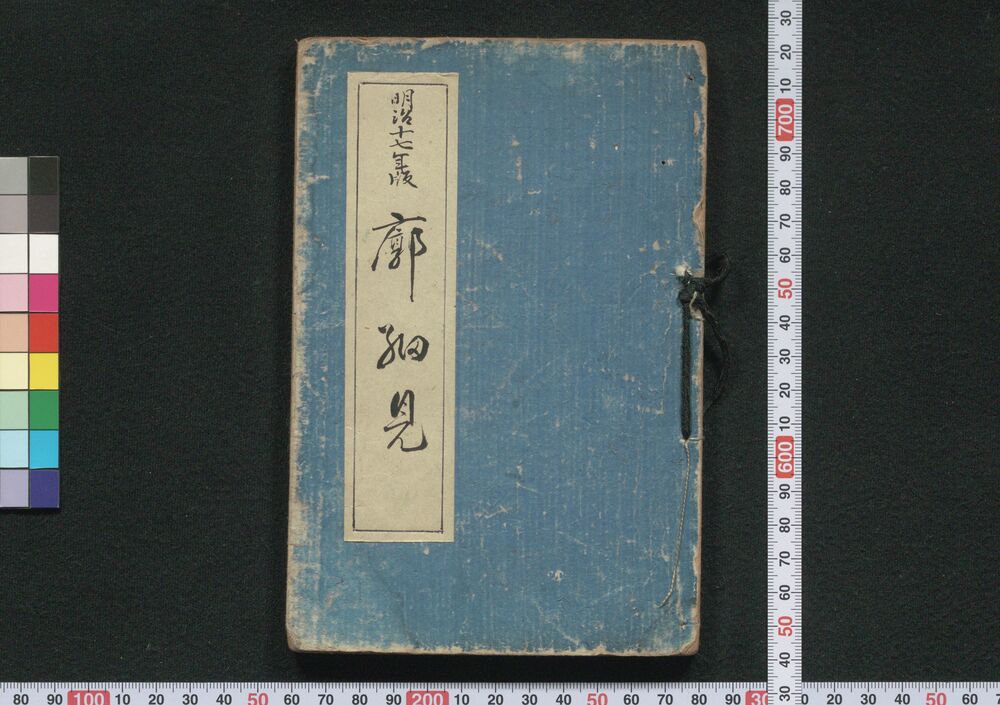 明治十七年版
廓細見
30
20
10
700
90
80
70
60
50
40
30
20
10
600
90
80
70
60
50
40
30
80 90 100 10 20 30 40 50 60 70 80 90 200 10 20 30 40 50 60 70 80 90 30 10 20 30 40 50 60 7